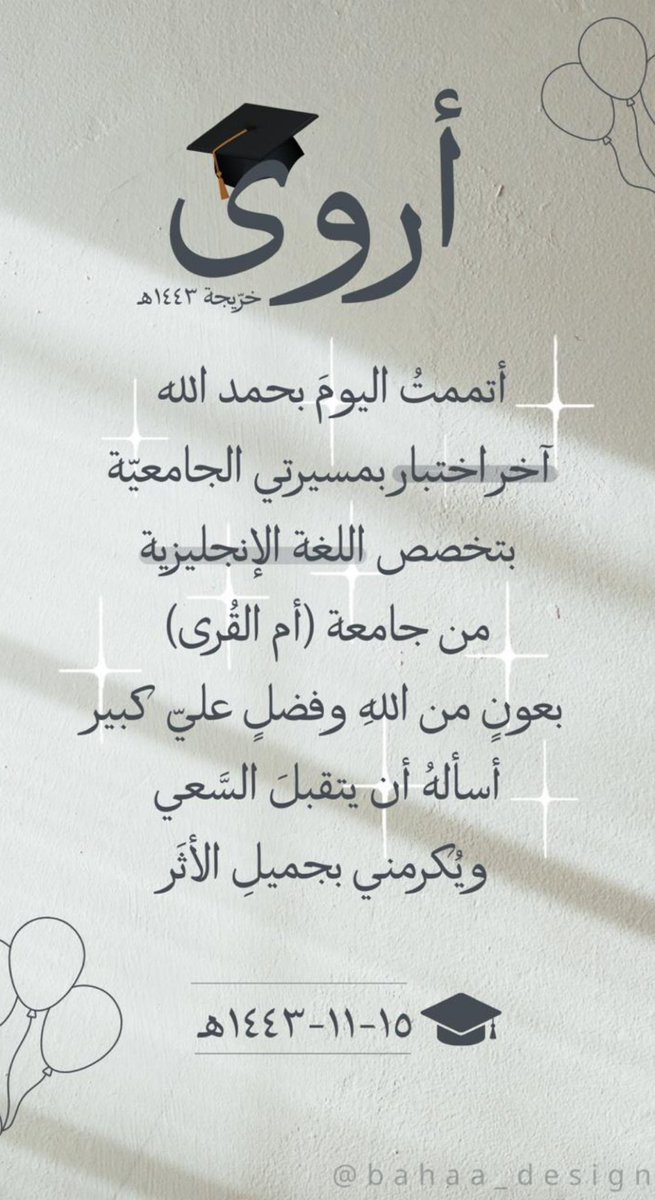 أروى
خرّيجة ١٤٤٣هـ
أتممتُ اليومَ بحمد الله
آخر اختبار بمسيرتي الجامعيّة
بتخصص اللغة الإنجليزية
من جامعة (أم القُرى)
بعونٍ من اللهِ وفضلٍ عليّ كبير
أسألهُ أن يتقبلَ السَّعي
ويُكرمني بجميلِ الأثَر
١٥-١١-١٤٤٣هـ
@bahaa_design